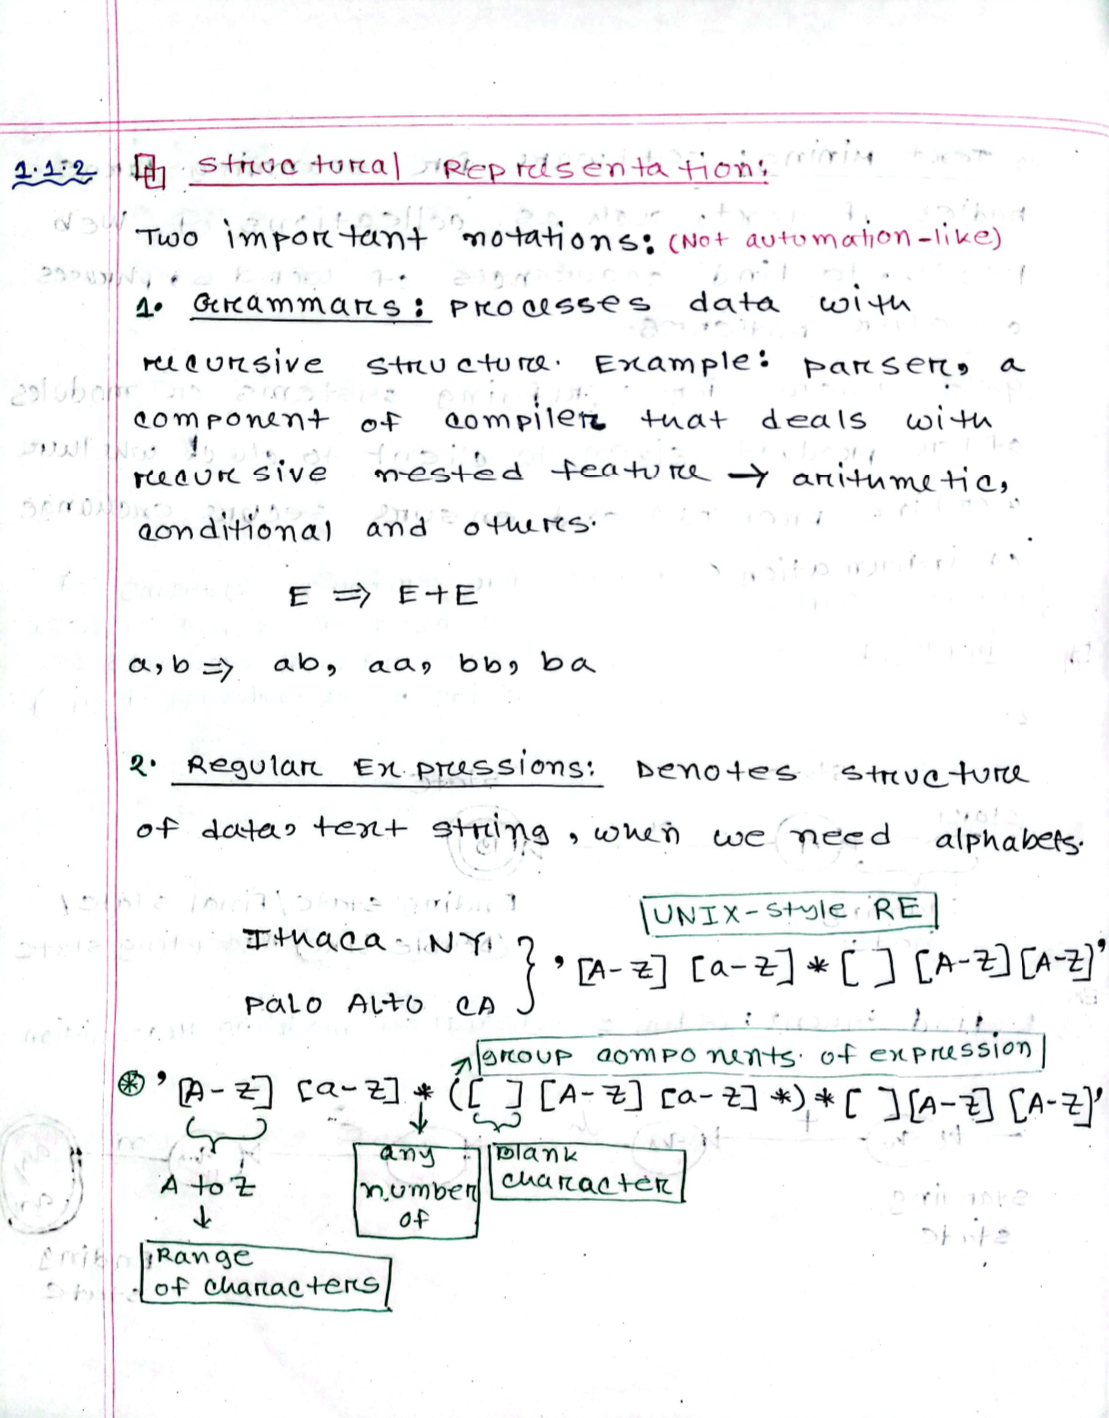 1.1.2 Structural Representation:
Two important notations: (Not automation-like)
1. Grammars: processes data with
recursive structure. Example: parser, a
component of compiler that deals with
recursive nested feature → arithmetic,
conditional and others.
E ⇒ E+E
a, b ⇒ ab, aa, bb, ba
2. Regular Expressions: Denotes structure
of data, text string, when we need alphabets.
UNIX-style RE
Ithaca NY
Palo Alto CA } '[A-Z] [a-z] * [ ] [A-Z] [A-Z]'
group components of expression
⊛ '[A-Z] [a-z] * ([ ] [A-Z] [a-z] *) * [ ] [A-Z] [A-Z]'
A to Z
any number of
blank character
Range
of characters